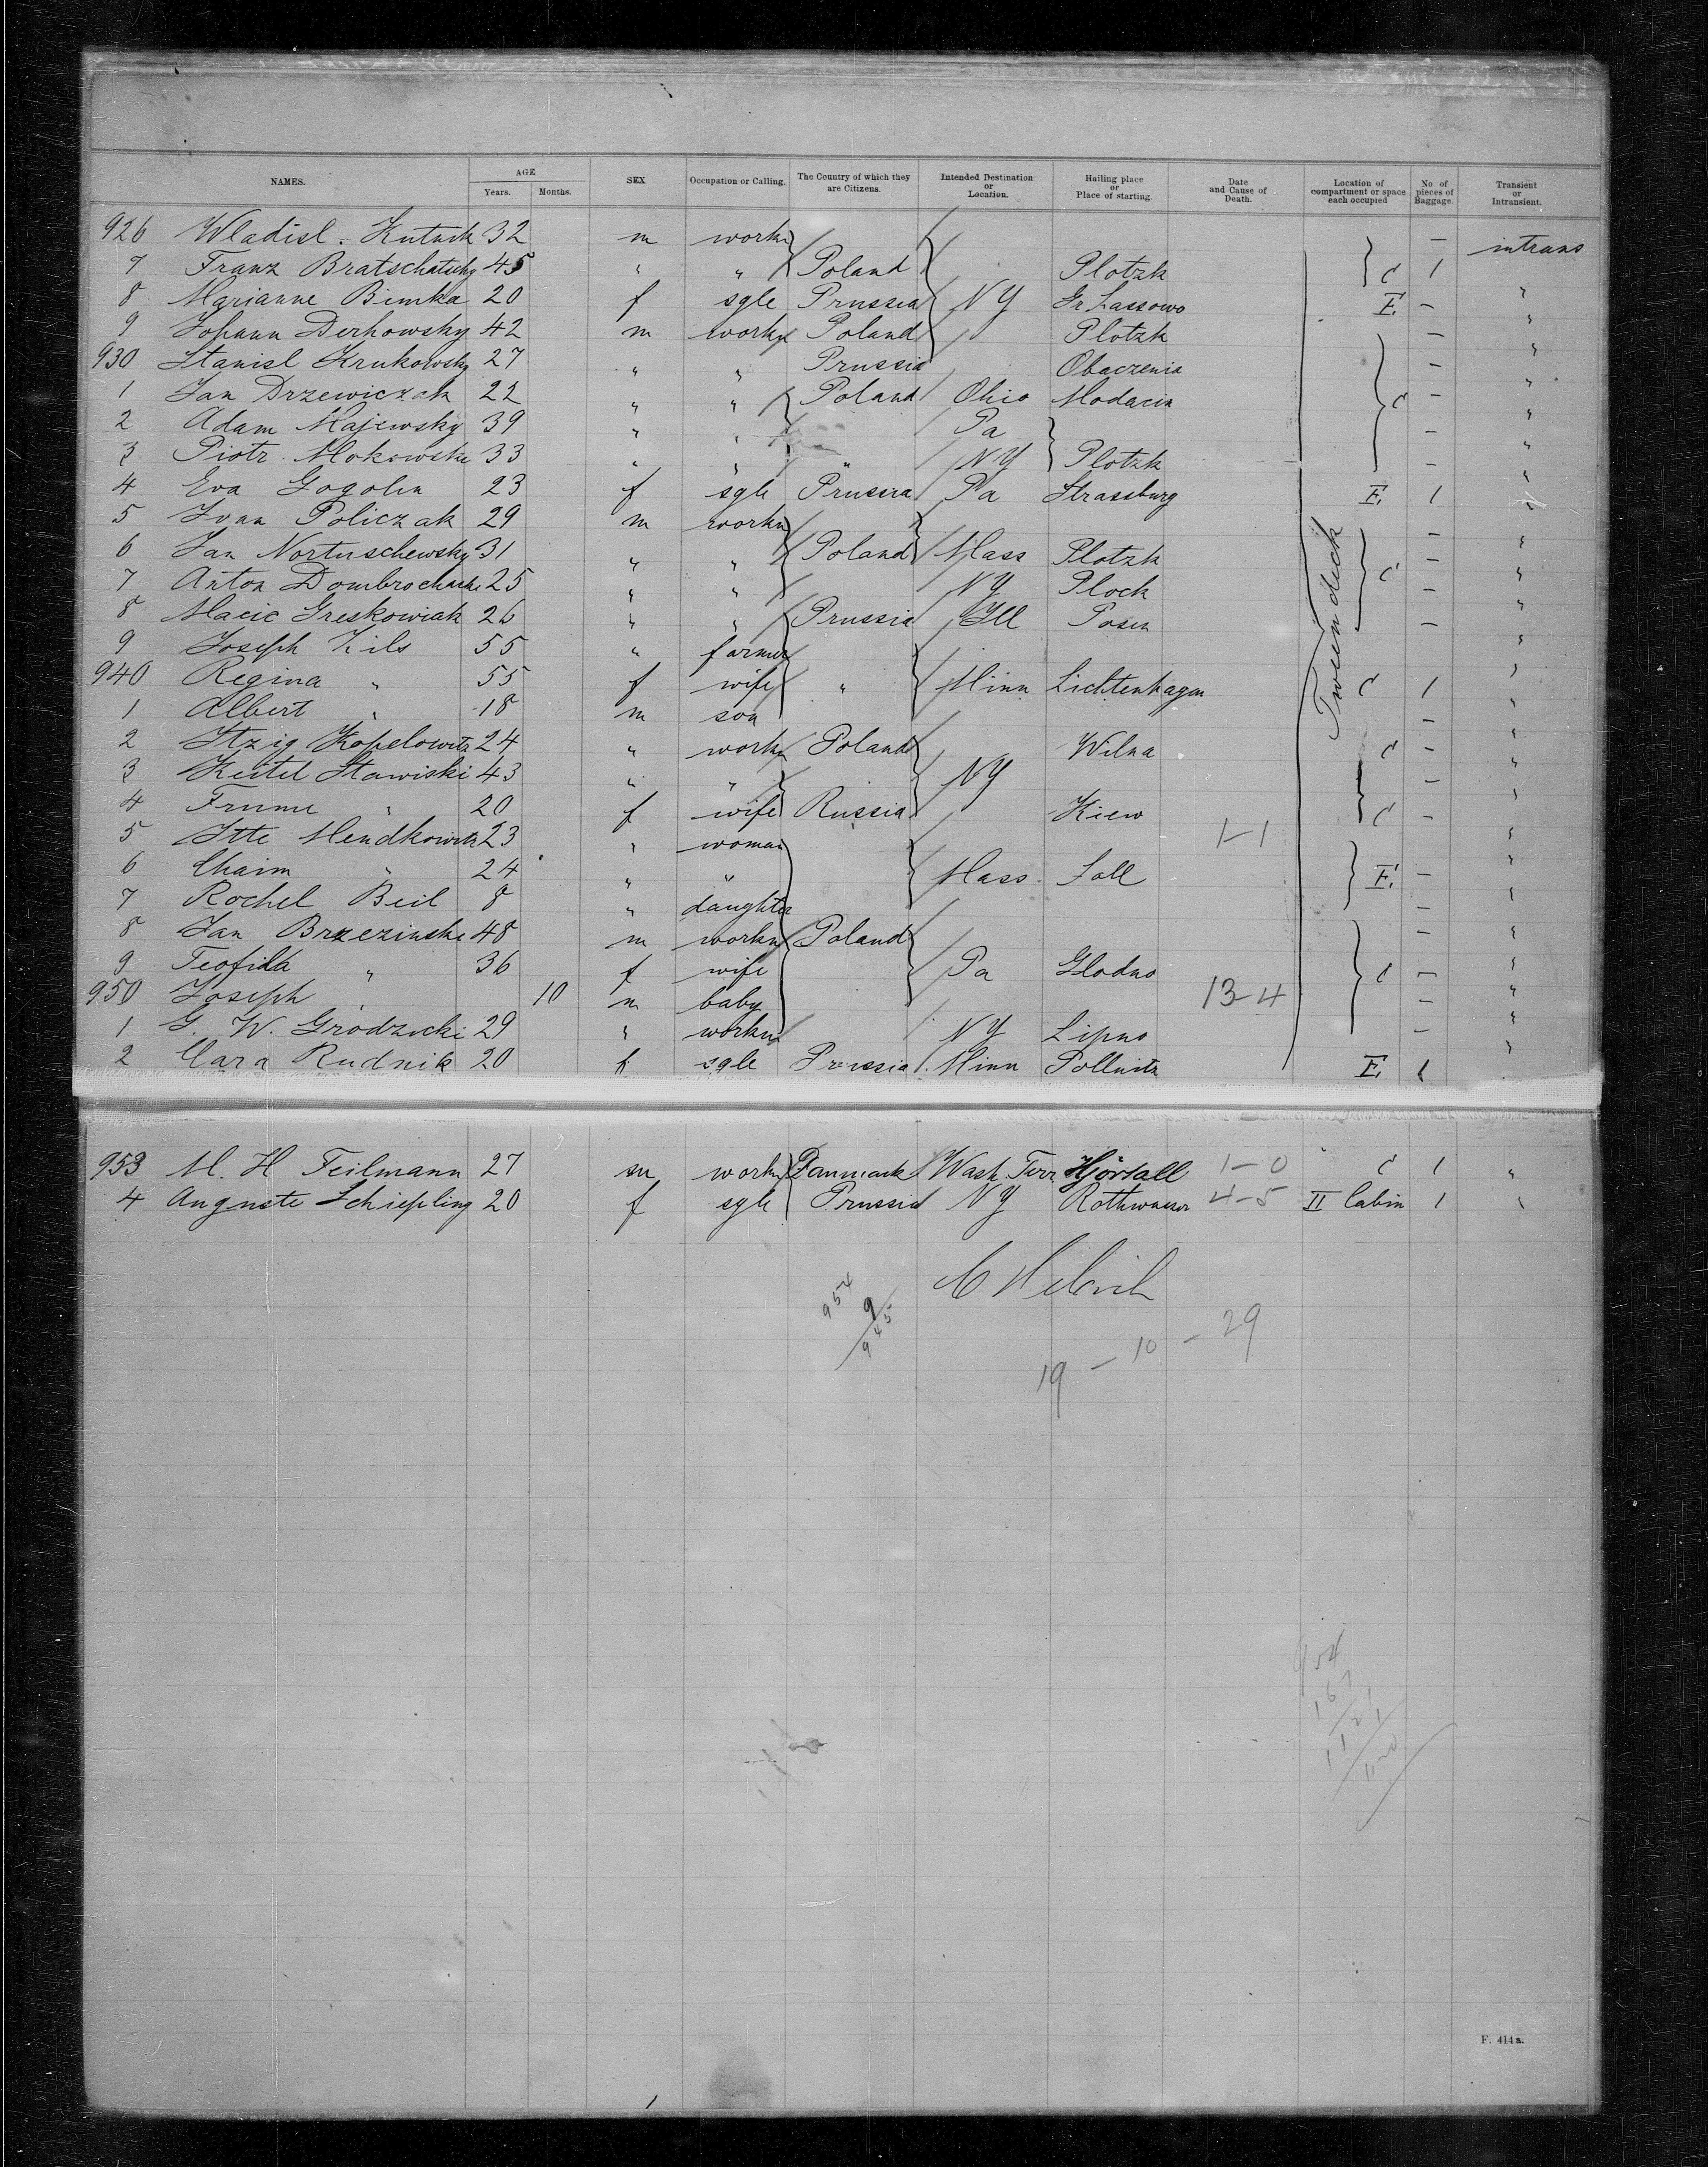 NAMES. AGE Years. Months. SEX Occupation or Calling. The Country of which they are Citizens. Intended Destination or Location. Hailing place or Place of starting. Date and Cause of Death. Location of compartment or space each occupied No. of pieces of Baggage. Transient or Intransient.
926 Wladisl. Kutnik 32 m workn — intrans
7 Franz Bratschatschy 45 " " Poland Plotzk C 1
8 Marianne Bimka 20 f sgle Prussia NY Gr Lassowo E. — "
9 Johann Derhowsky 42 m workn Poland Plotzk — "
930 Stanisl Krukowsky 27 " " Prussia Obaczenia — "
1 Jan Drzewiczak 22 " " Poland Ohio Modacin C — "
2 Adam Majewsky 39 " " Pa — "
3 Piotr Mokowske 33 " " " NY Plotzk — "
4 Eva Gogolin 23 f sgle Prussia Pa Strassburg E. 1 "
5 Ivan Policzak 29 m workn — "
6 Jan Nortuschewsky 31 " " Poland Mass Plotzk — "
7 Anton Dombrochaske 25 " " NY Plock C — "
8 Macic Greskowiak 26 " " Prussia Ill Posen — "
9 Joseph Kils 55 " farmer "
940 Regina " 55 f wife " Minn Lichtenhagen C 1 "
1 Albert " 18 m son — "
2 Itzig Kopelowitz 24 " workn Poland Wilna C — "
3 Keitel Stawiski 43 " " NY — "
4 Frume " 20 f wife Russia Kiew C — "
5 Itte Mendkowitz 23 " woman 1-1 "
6 Chaim " 24 " " Mass. Soll E. — "
7 Rochel Beil 8 " daughter — "
8 Jan Brzezinske 48 m workn Poland — "
9 Teofila " 36 f wife Pa Glodno C — "
950 Joseph " 10 m baby 13-4 — "
1 G. W. Grodzicki 29 " workn NY Lipno — "
2 Clara Rudnik 20 f sgle Prussia Minn Pollnitz E. 1
Tween deck
953 M. H Feilmann 27 m workn Danmark Wash. Terr Hjörsall 1-0 C 1 "
4 Auguste Schiepling 20 f sgle Prussia NY Rothwasser 4-5 II Cabin 1 "
954
9
945
19 - 10 - 29
954
167
1121
F. 414a.